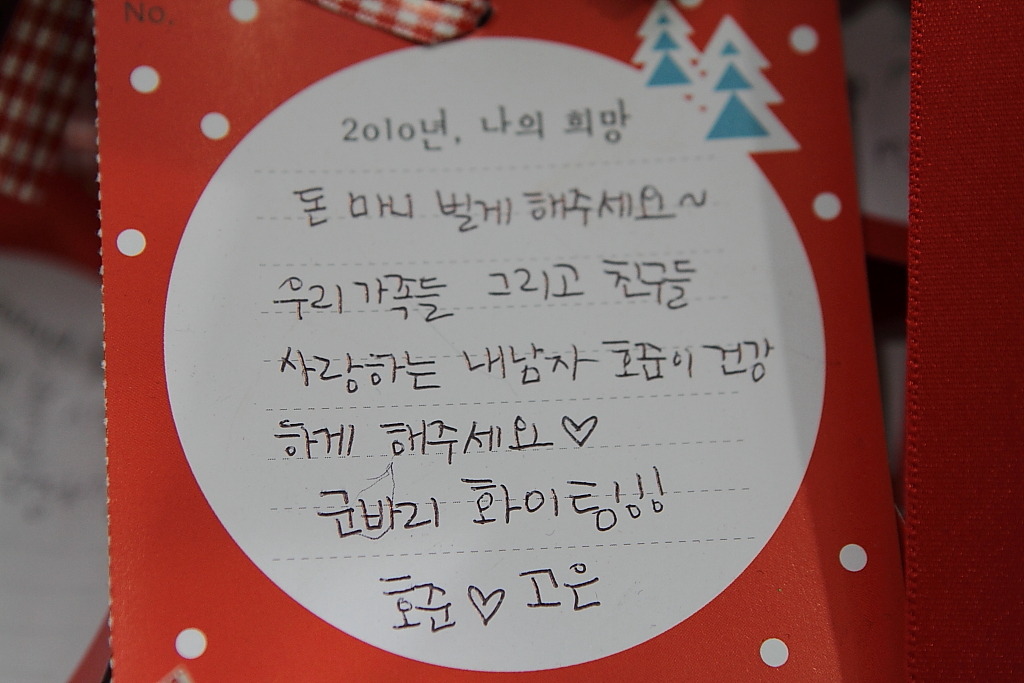 No.
2010년, 나의 희망
돈 마니 벌게 해주세요~
우리가족들 그리고 친구들
사랑하는 내남자 호준이 건강
하게 해주세요♡
군바리 화이팅!!!
호준♡고은